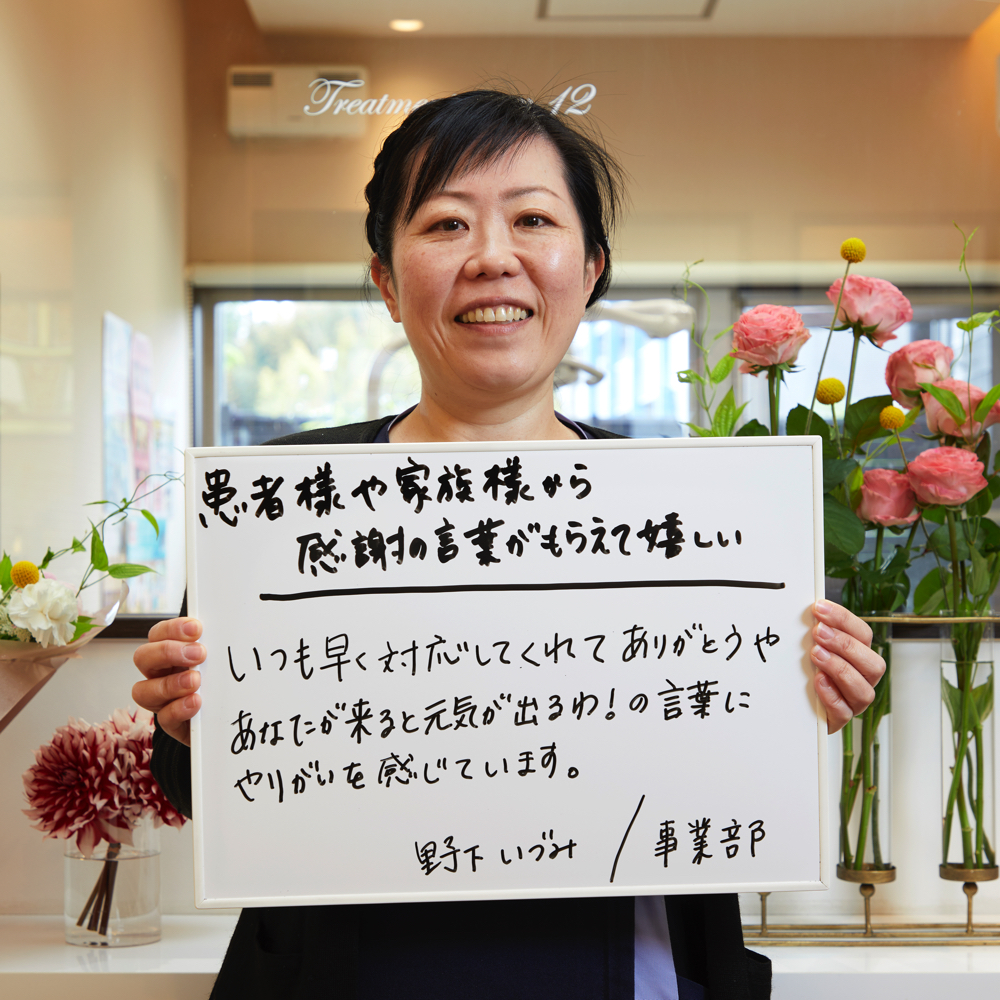 Treatme 12
患者様や家族様から
感謝の言葉がもらえて嬉しい
いつも早く対応してくれてありがとうや
あなたが来ると元気が出るわ!の言葉に
やりがいを感じています。
野下 いづみ / 事業部